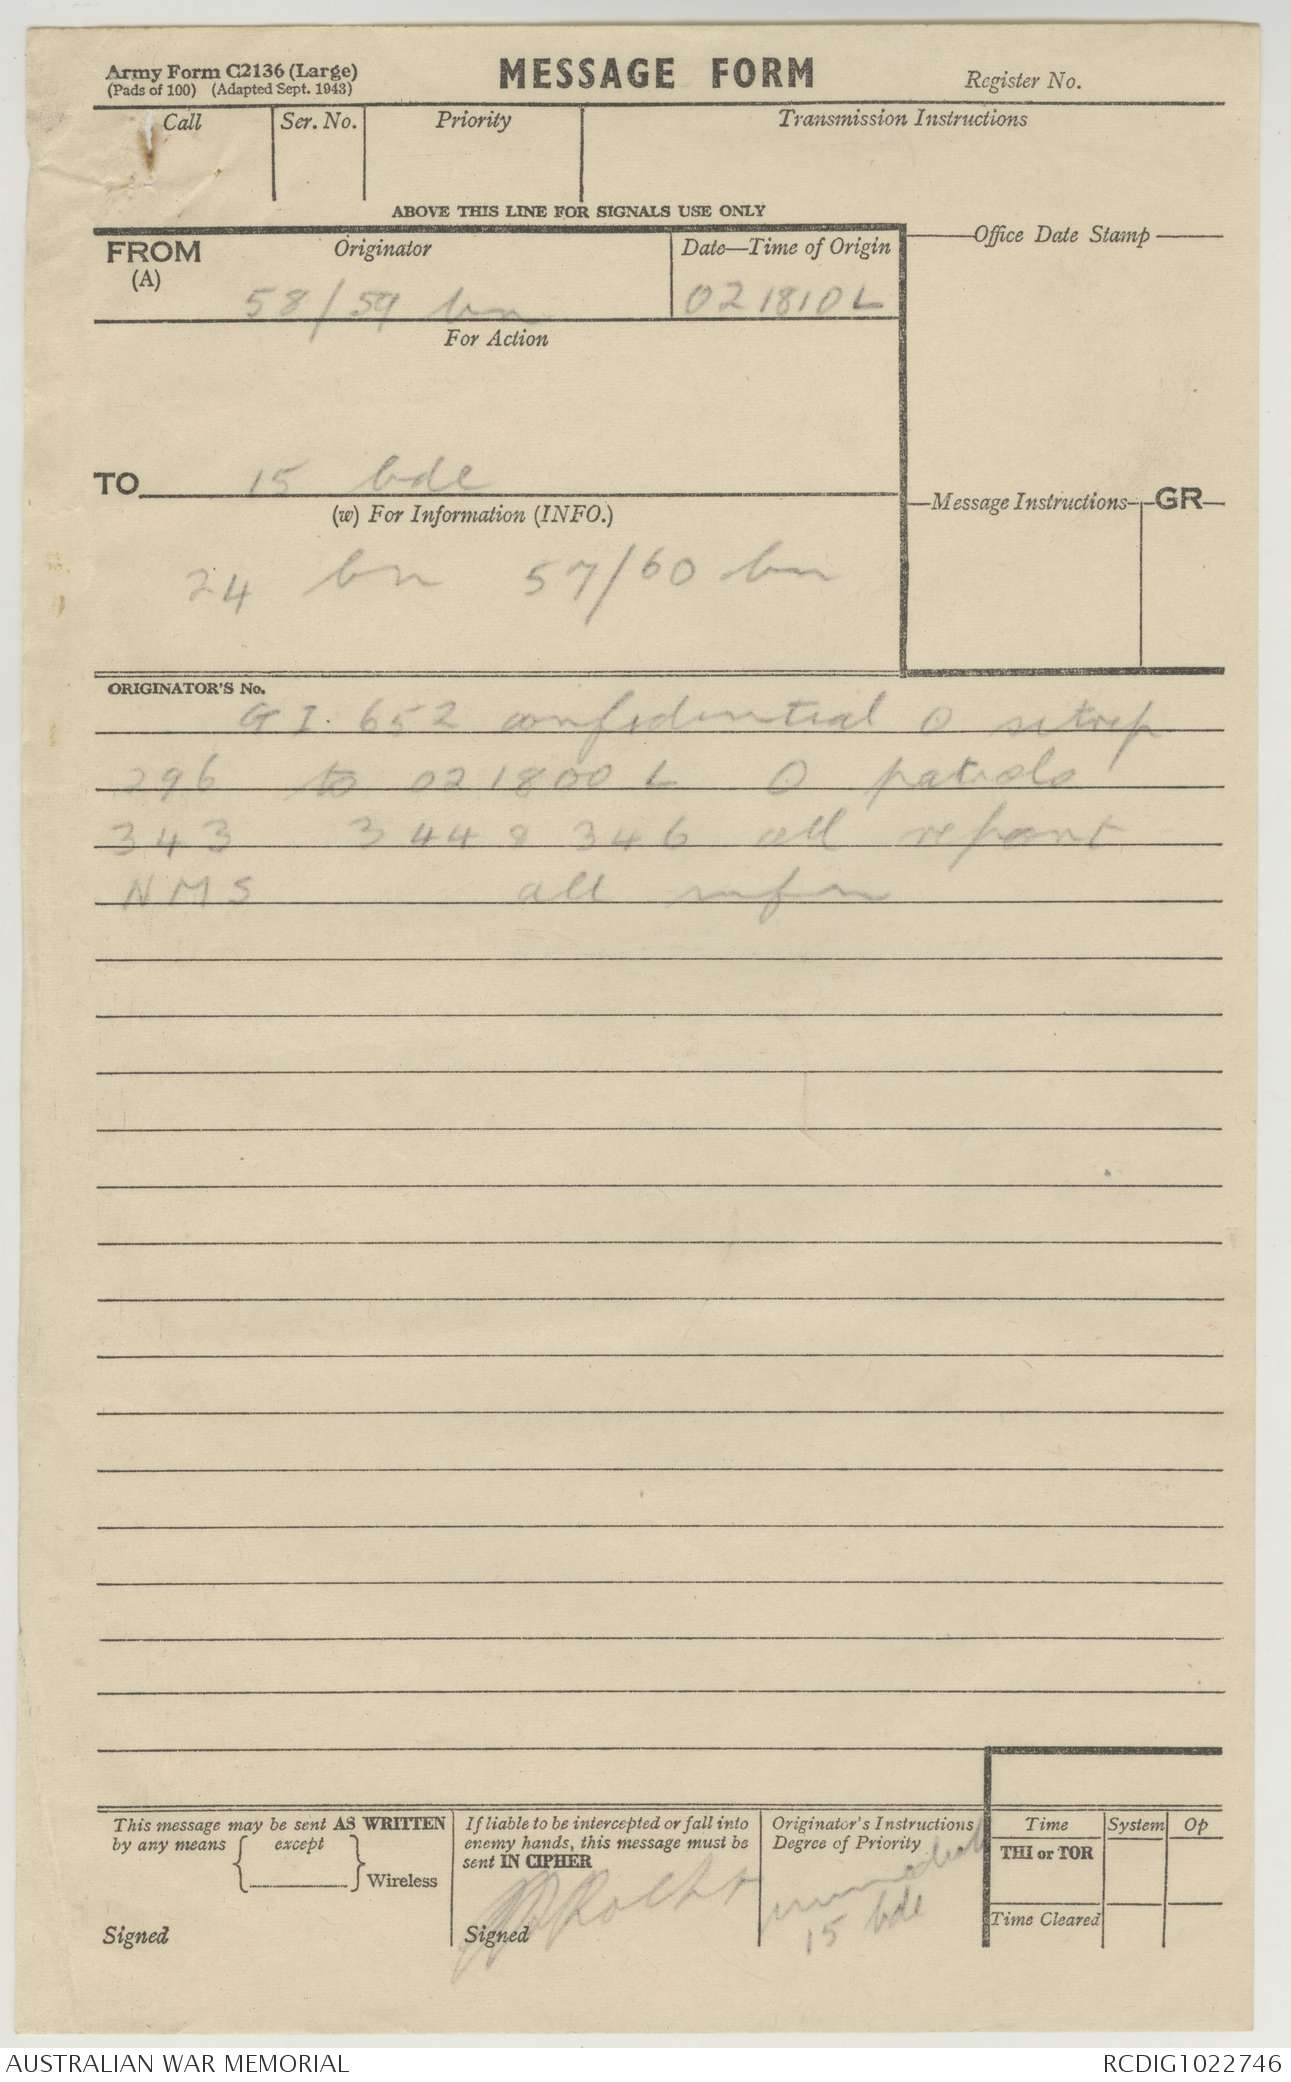 Army Form C2136 (Large)
(Pads of 100) (Adapted Sept. 1943)
MESSAGE FORM
Register No.
Call
Ser. No.
Priority
Transmission Instructions
ABOVE THIS LINE FOR SIGNALS USE ONLY
FROM
(A)
Originator
58/59 bn
Date—Time of Origin
021810L
Office Date Stamp
For Action
TO 15 bde
(w) For Information (INFO.)
24 bn 57/60 bn
Message Instructions
GR
ORIGINATOR'S No.
GI. 652 confidential O sitrep
296 to 021800 L O patrols
343 344 8 346 all report
NMS all infm
This message may be sent AS WRITTEN
by any means { except }
Wireless
Signed
If liable to be intercepted or fall into
enemy hands, this message must be
sent IN CIPHER
Signed
Originator's Instructions
Degree of Priority
immediate
15 bde
Time
System
Op
THI or TOR
Time Cleared
AUSTRALIAN WAR MEMORIAL
RCDIG1022746